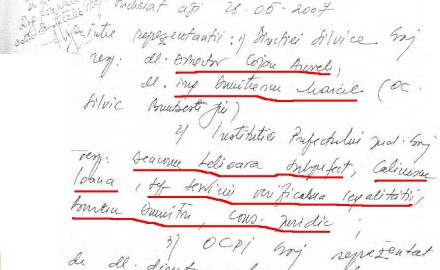 încheiat azi 28.05.2007
între reprezentanții: 1) Direcției Silvice Gorj
rep: dl. Director Cojan Aurel,
dl. ing Dumitrescu Marcel (OC.
Silvic Bumbești Jiu)
2) Instituției Prefectului jud. Gorj
rep: Deaconu Lelioara Subprefect, Calinescu
Ioana, șef serviciu verificarea legalității,
Dumitru, cons. juridic;
3) OCPI Gorj reprezentat
de dl.